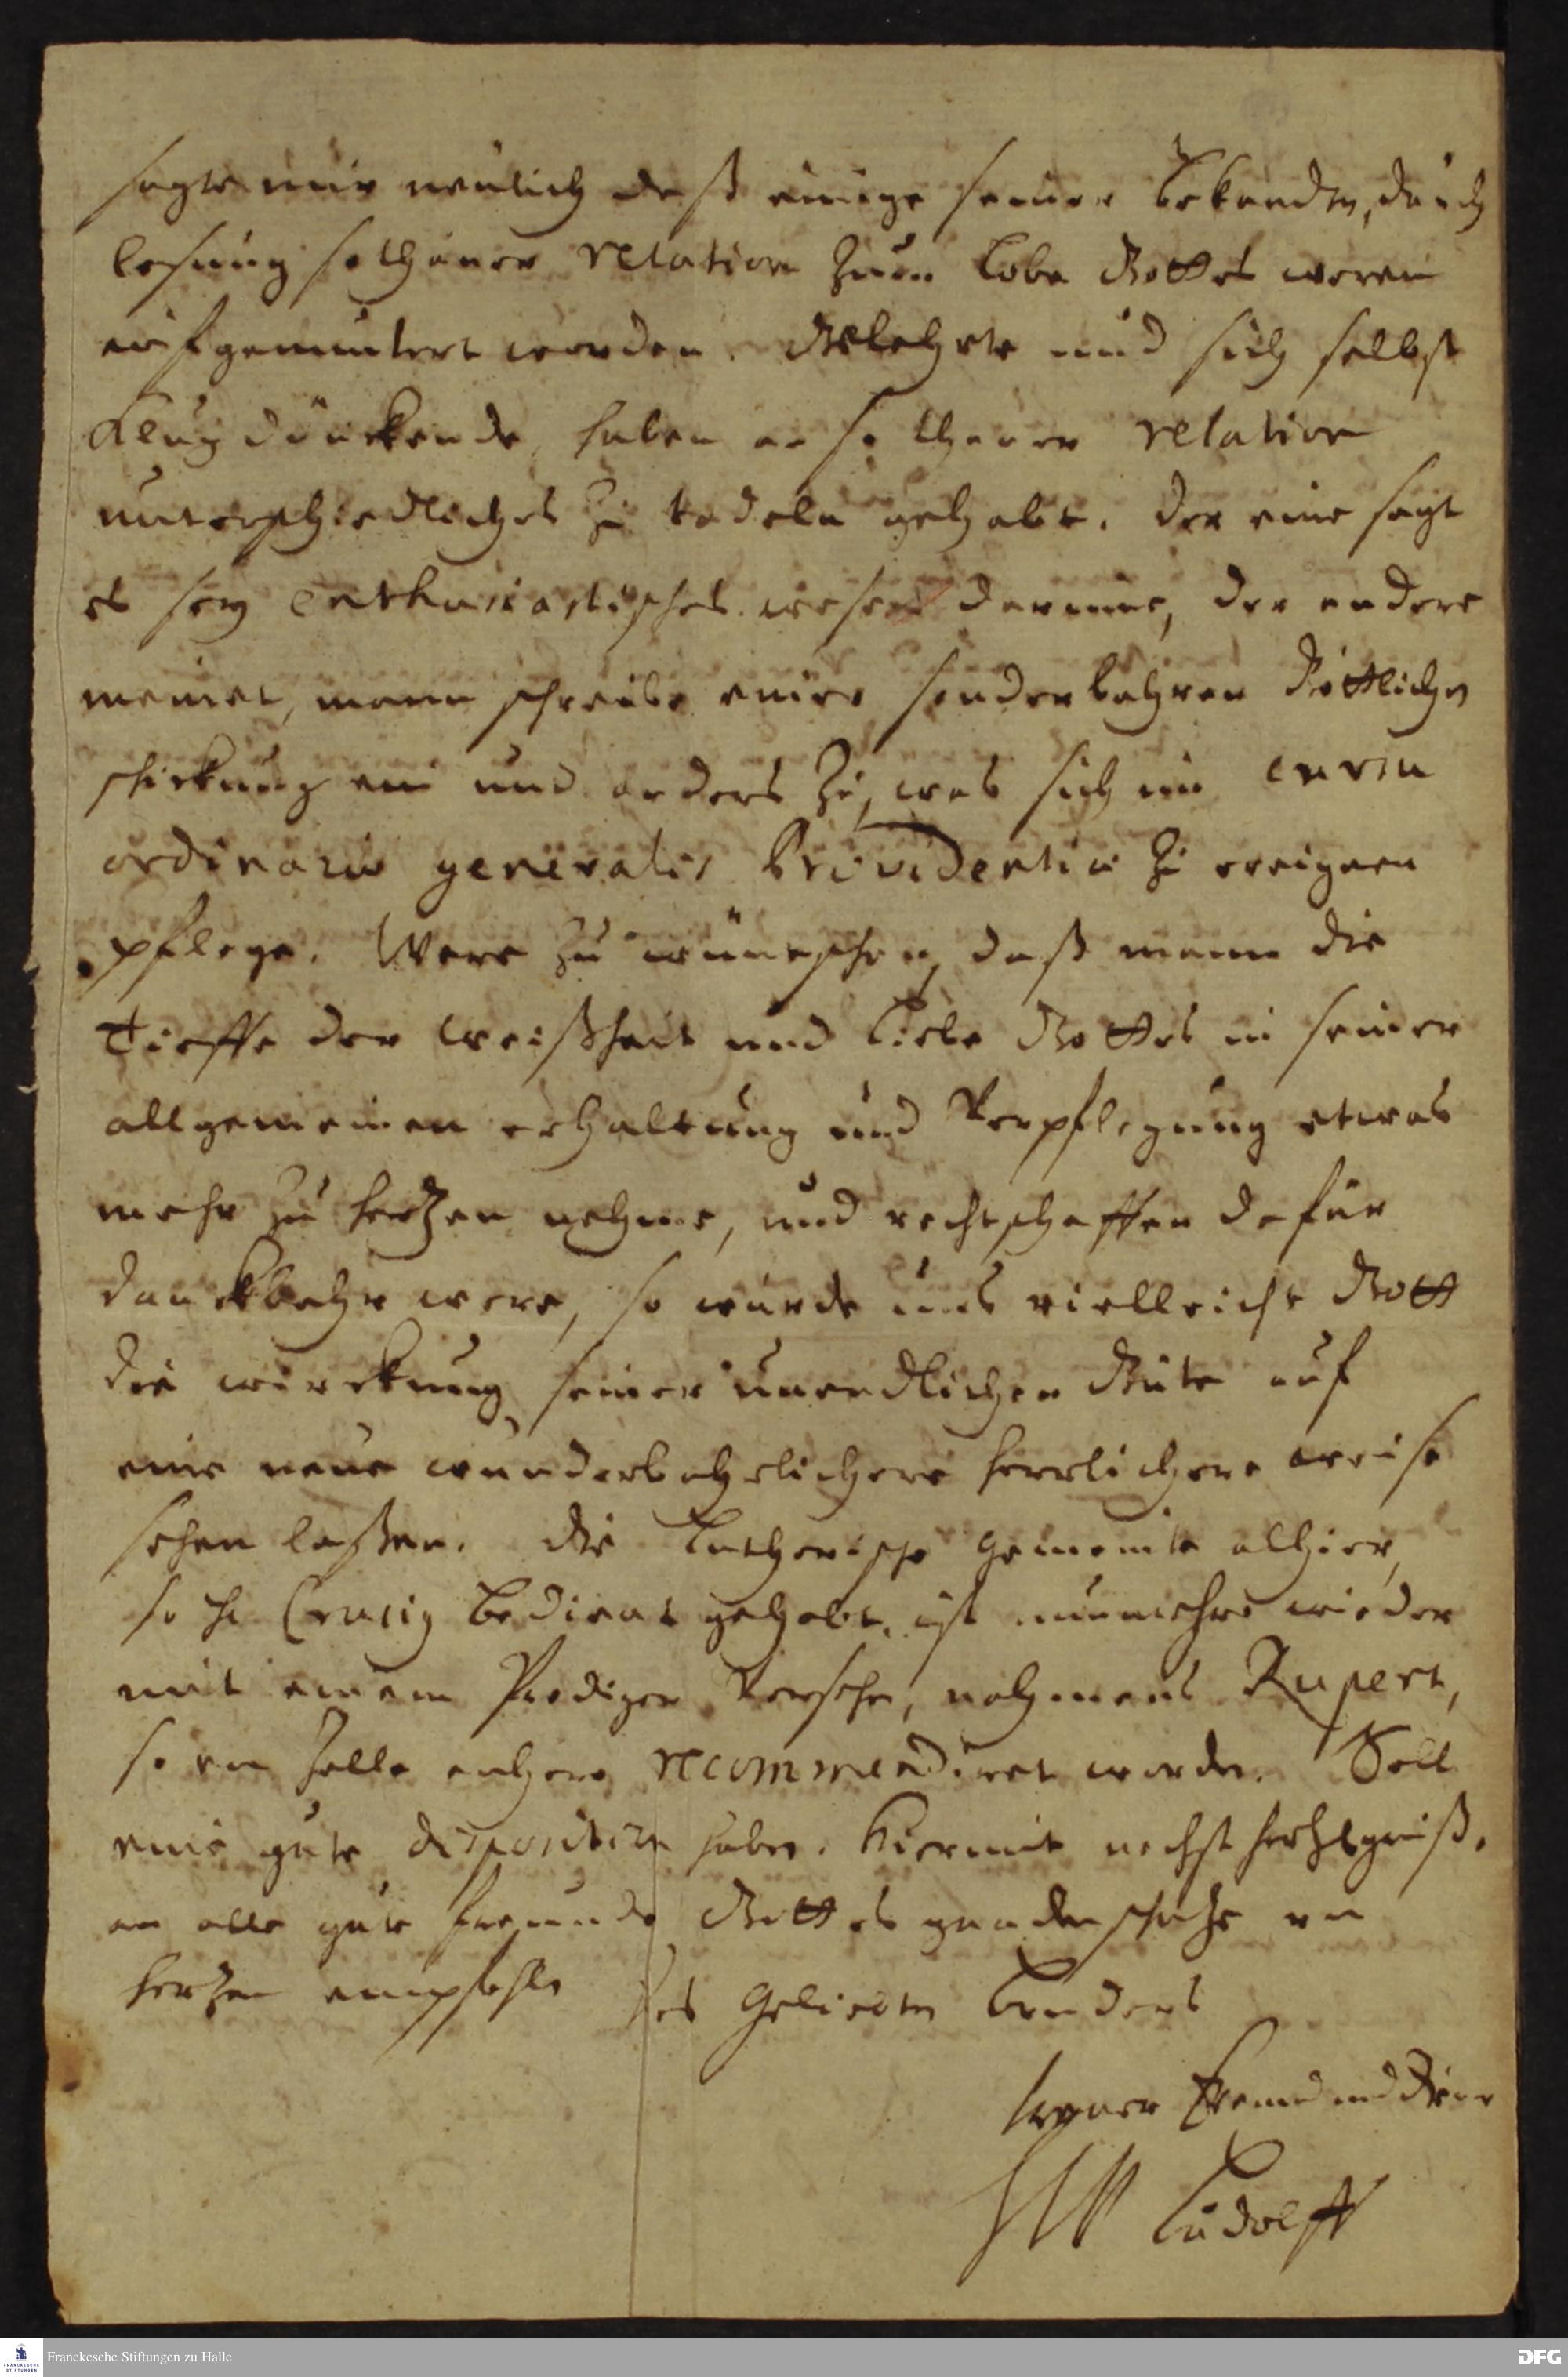 sagte mir neulich daß einige seiner bekandten, durch
lesung sothaner relation zum lobe Gottes weren
aufgemuntert worden. Gelehrte und sich selbst
klug dünckende haben an sothaner relation
unterschiedliches zu tadeln gehabt. Der eine sagt
es sey enthusiastisches wesen darinne, der andere
meinet, mann schreibe einer sonderbahren Göttlichen
schickung ein und anders zu, was sich in cursu
ordinario generalis Providentiæ zu ereignen
pflege. Were zu wünschen, daß mann die
Tieffe der weißheit und liebe Gottes in seiner
allgemeinen erhaltung und Verpflegung etwas
mehr zu hertzen nehme, und rechtschaffen dafür
danckbahr were, so würde uns vielleicht Gott
die wirckung seiner unendlichen Güte auf
eine neue wunderbahrlichere herrlichere weise
sehen laßen. Die Lutherische gemeinte alhier,
so H. Crusig bedienet gehabt, ist nunmehro wieder
mit einem Prediger versehen, nahmens Rupert,
so von Halle anhero recommendiret worden. Soll
eine gute disposition haben. Hiermit nechst hertzl. gruß.
an alle gute freunde Gottes gnadenschutze von
hertzen empfehle Des Geliebten bruders
treuer Freund und Diener
HW Ludolff
Franckesche Stiftungen zu Halle
FRANCKESCHE
STIFTUNGEN
DFG